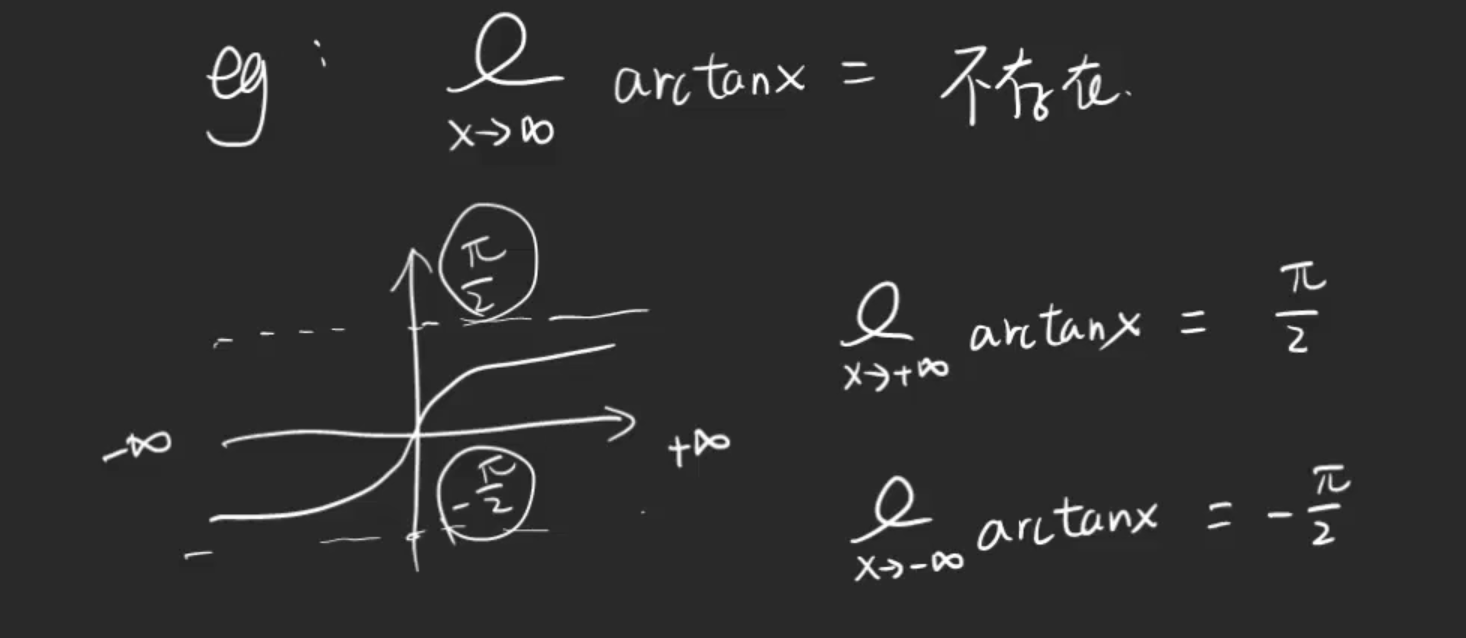 eg: lim x→∞ arctanx = 不存在.
π/2
-∞
+∞
-π/2
lim x→+∞ arctanx = π/2
lim x→-∞ arctanx = -π/2